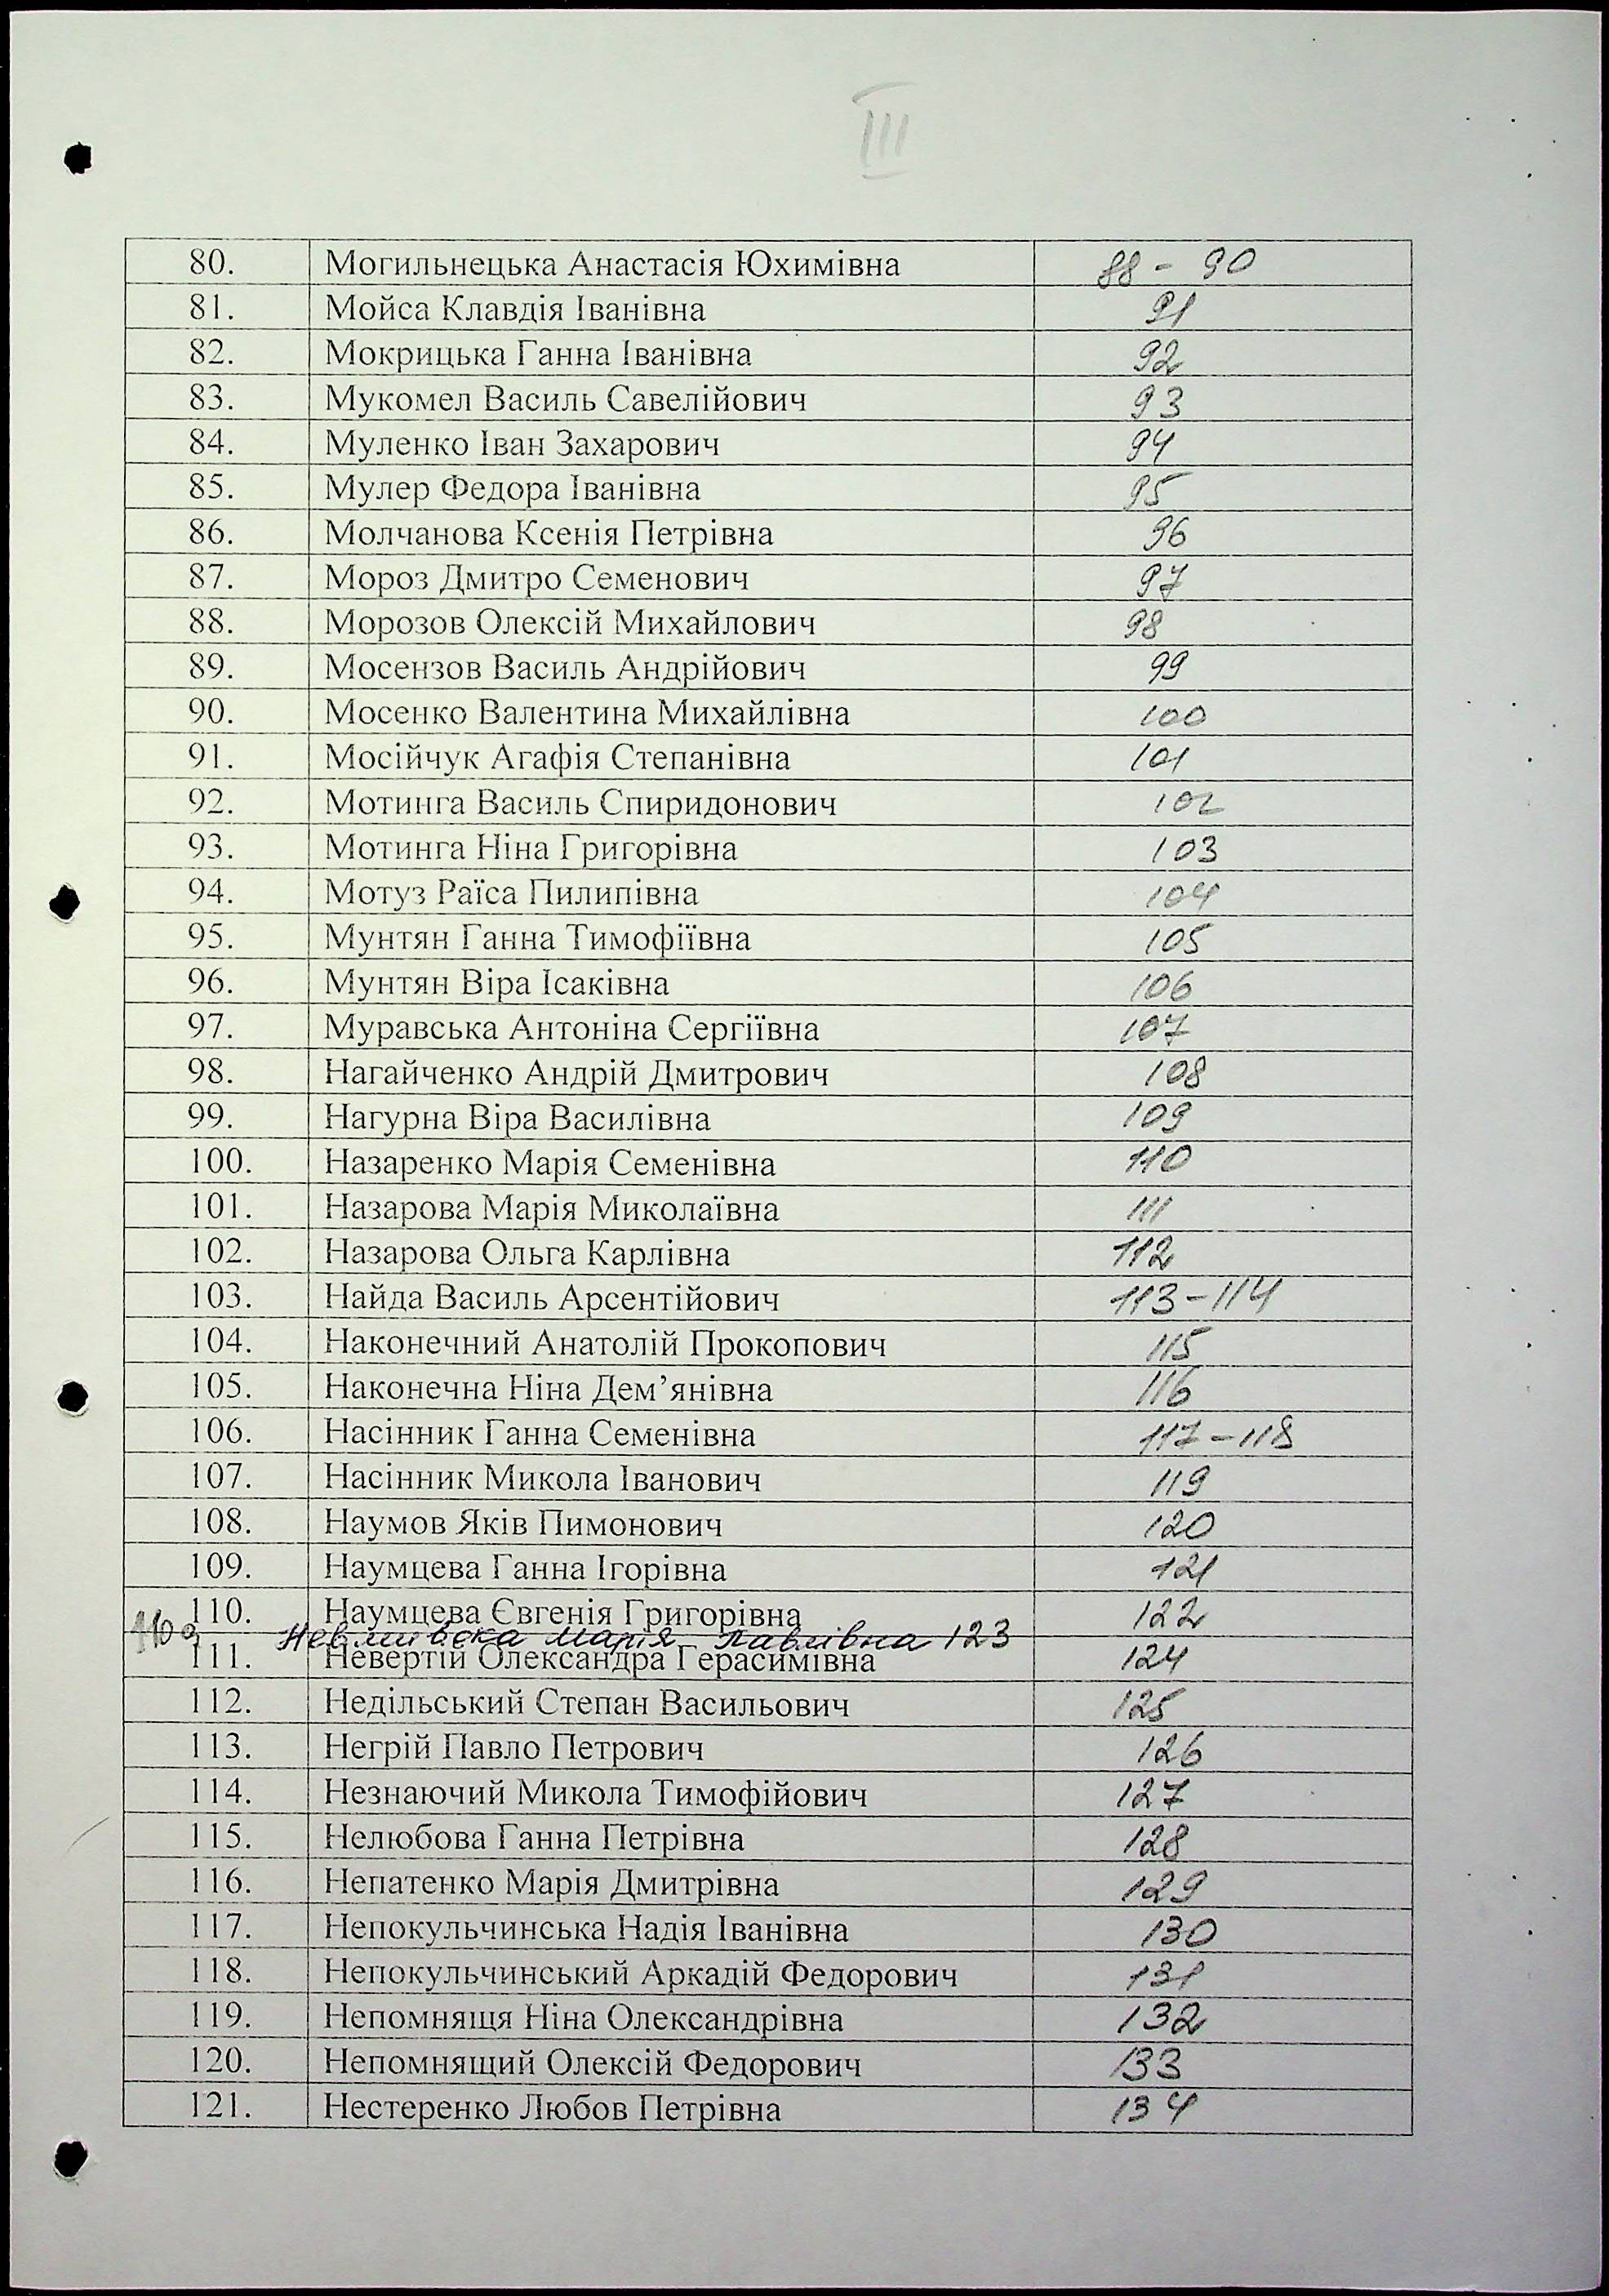 III
80. Могильнецька Анастасія Юхимівна 88 - 90
81. Мойса Клавдія Іванівна 91
82. Мокрицька Ганна Іванівна 92
83. Мукомел Василь Савелійович 93
84. Муленко Іван Захарович 94
85. Мулер Федора Іванівна 95
86. Молчанова Ксенія Петрівна 96
87. Мороз Дмитро Семенович 97
88. Морозов Олексій Михайлович 98
89. Мосензов Василь Андрійович 99
90. Мосенко Валентина Михайлівна 100
91. Мосійчук Агафія Степанівна 101
92. Мотинга Василь Спиридонович 102
93. Мотинга Ніна Григорівна 103
94. Мотуз Раїса Пилипівна 104
95. Мунтян Ганна Тимофіївна 105
96. Мунтян Віра Ісаківна 106
97. Муравська Антоніна Сергіївна 107
98. Нагайченко Андрій Дмитрович 108
99. Нагурна Віра Василівна 109
100. Назаренко Марія Семенівна 110
101. Назарова Марія Миколаївна 111
102. Назарова Ольга Карлівна 112
103. Найда Василь Арсентійович 113-114
104. Наконечний Анатолій Прокопович 115
105. Наконечна Ніна Дем’янівна 116
106. Насінник Ганна Семенівна 117-118
107. Насінник Микола Іванович 119
108. Наумов Яків Пимонович 120
109. Наумцева Ганна Ігорівна 121
110. Наумцева Євгенія Григорівна 122
110а Марія Павлівна 123
111. Невертій Олександра Герасимівна 124
112. Недільський Степан Васильович 125
113. Негрій Павло Петрович 126
114. Незнаючий Микола Тимофійович 127
115. Нелюбова Ганна Петрівна 128
116. Непатенко Марія Дмитрівна 129
117. Непокульчинська Надія Іванівна 130
118. Непокульчинський Аркадій Федорович 131
119. Непомнящя Ніна Олександрівна 132
120. Непомнящий Олексій Федорович 133
121. Нестеренко Любов Петрівна 134